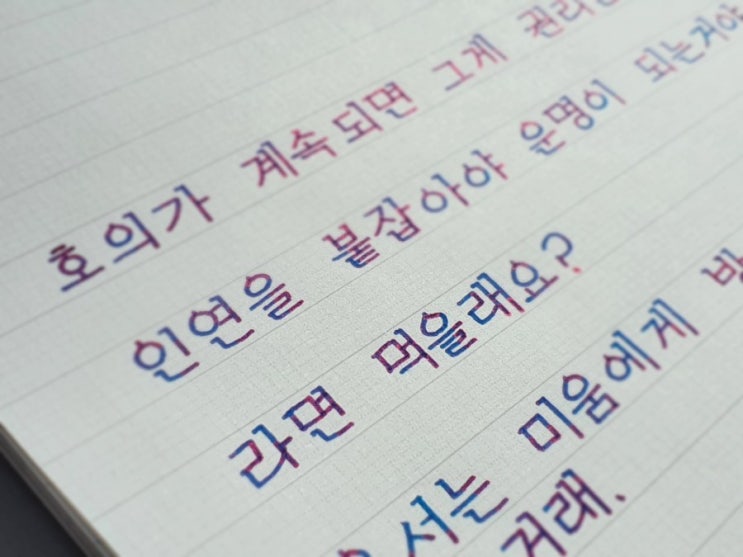 호의가 계속되면 그게 권리
인연을 붙잡아야 운명이 되는거야
라면 먹을래요?
서는 미움에게
거래.